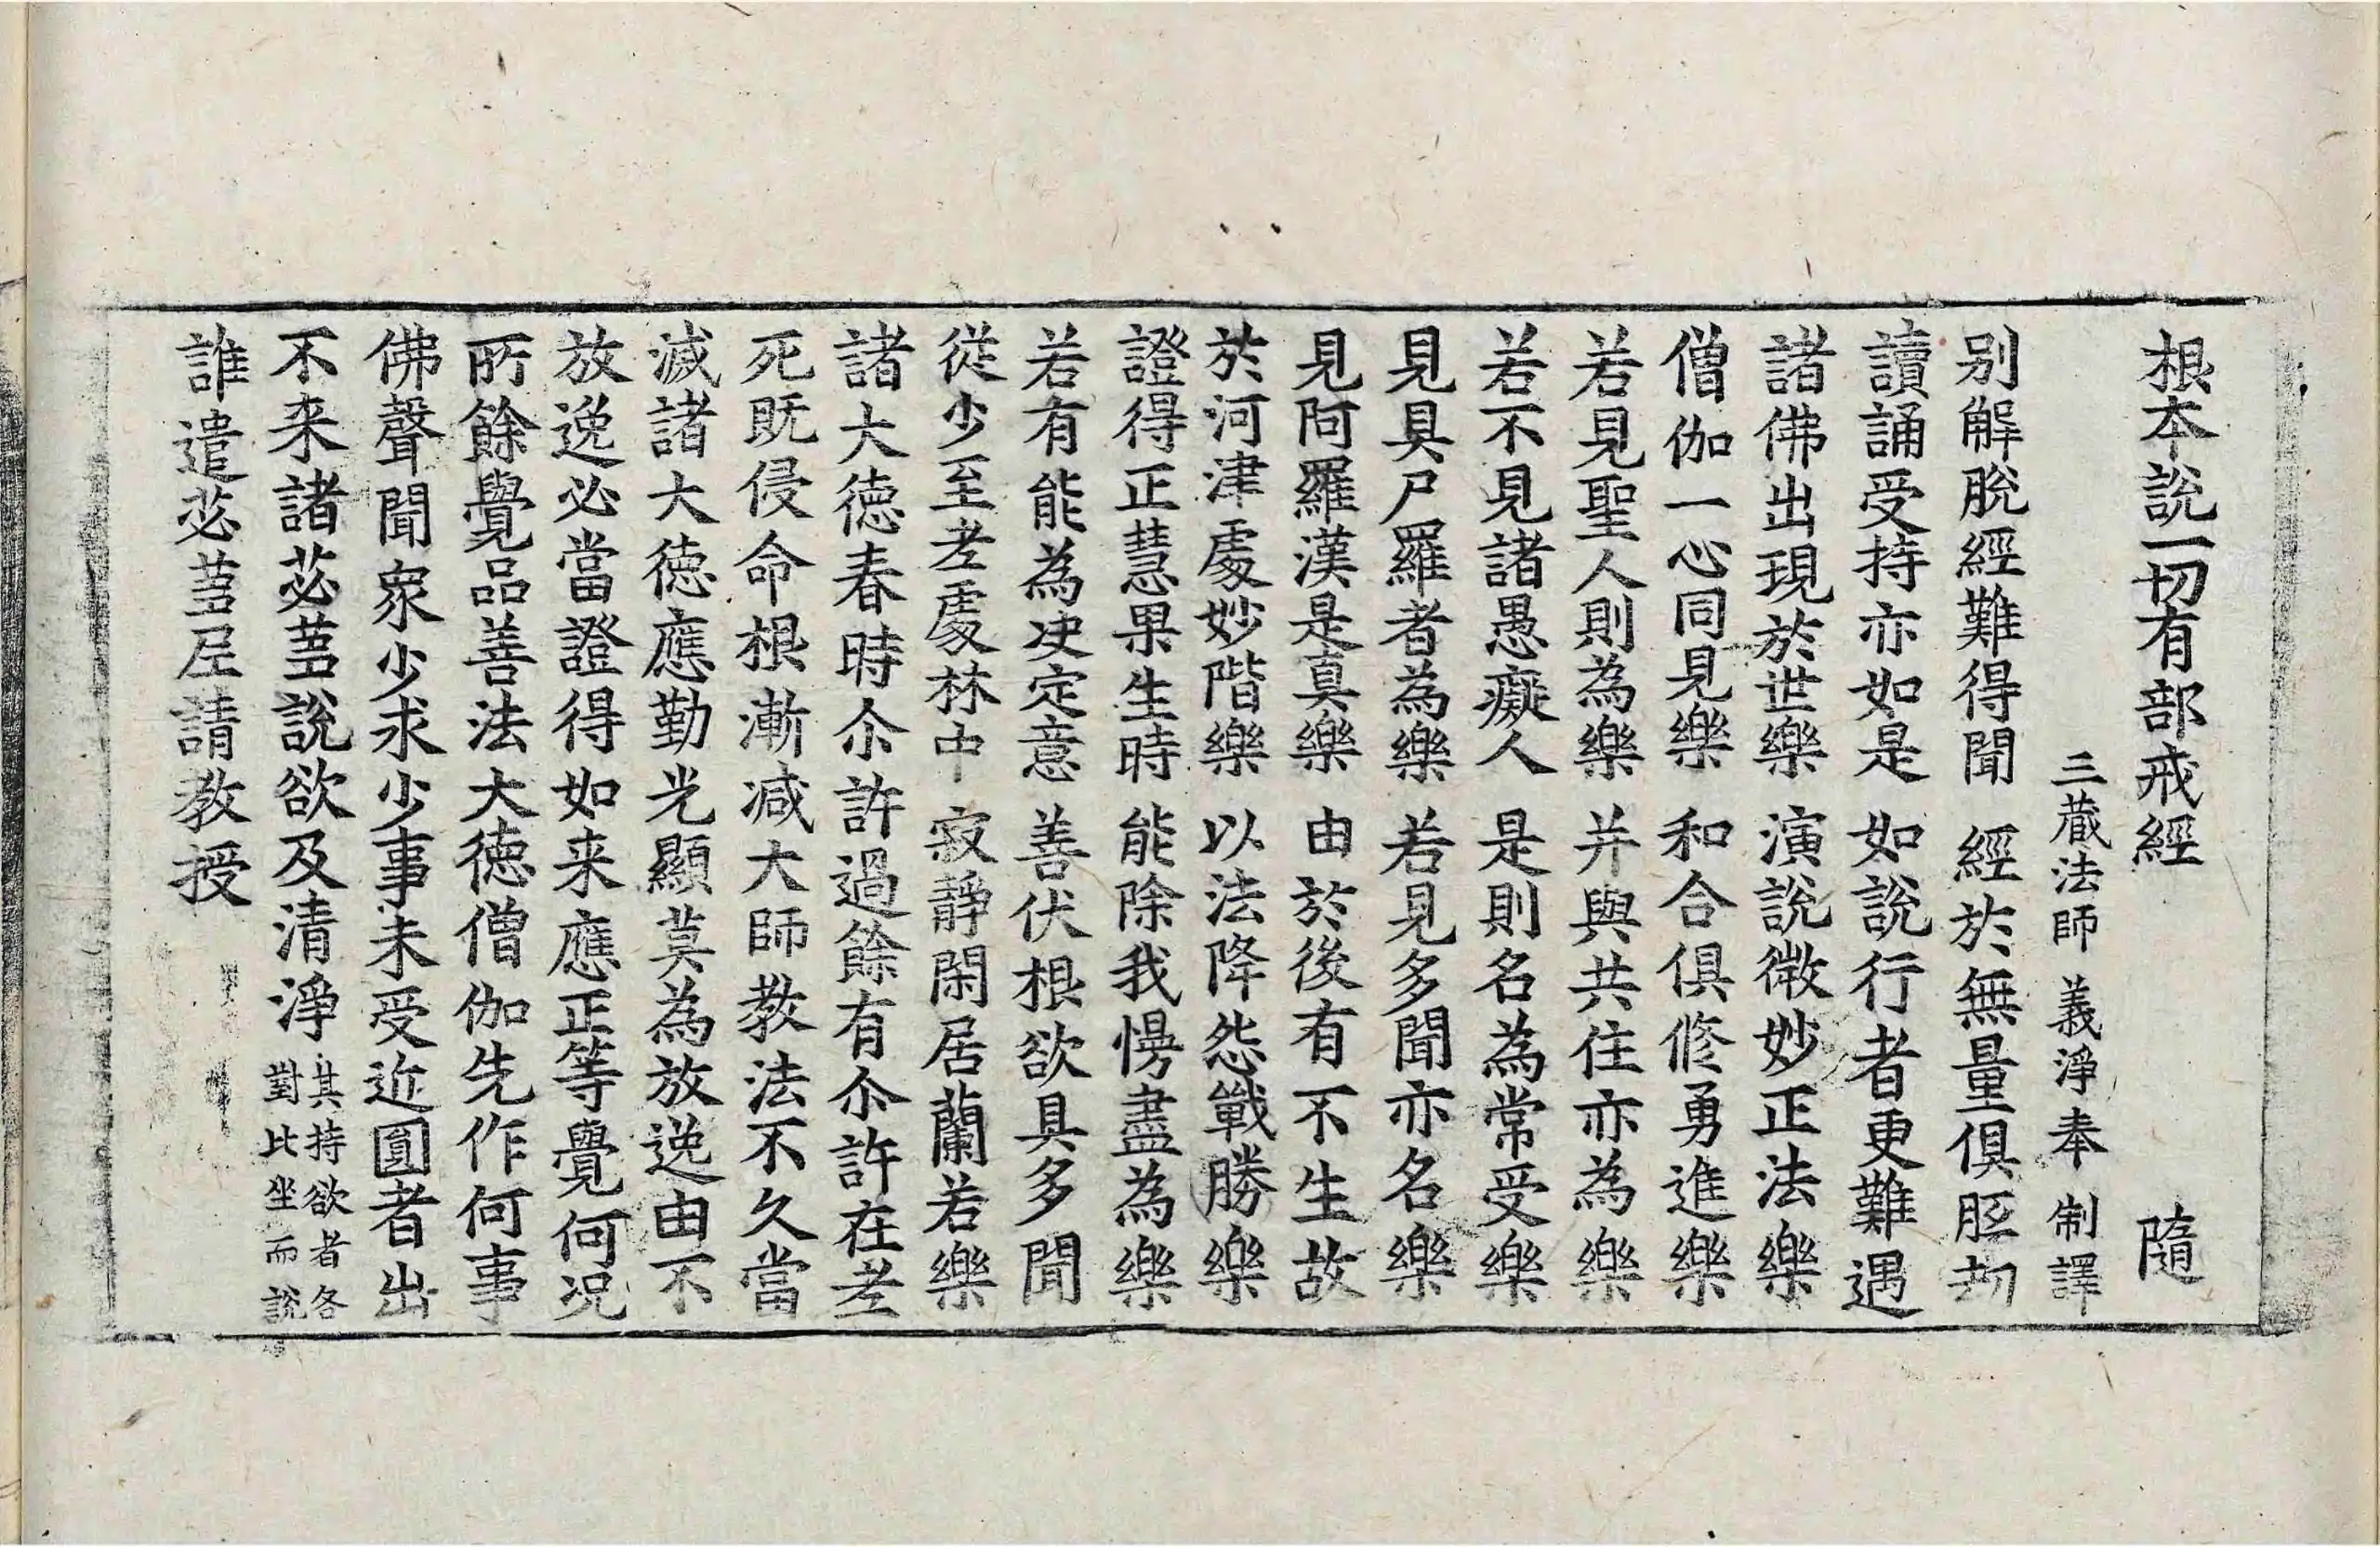 根本說一切有部戒經 隨
三藏法師 義淨奉 制譯
別解脫經難得聞 經於無量俱胝劫
讀誦受持亦如是 如說行者更難遇
諸佛出現於世樂 演說微妙正法樂
僧伽一心同見樂 和合俱修勇進樂
若見聖人則為樂 并與共住亦為樂
若不見諸愚癡人 是則名為常受樂
見具尸羅者為樂 若見多聞亦名樂
見阿羅漢是真樂 由於後有不生故
於河津處妙階樂 以法降怨戰勝樂
證得正慧果生時 能除我慢盡為樂
若有能為决定意 善伏根欲具多聞
從少至老處林中 寂靜閑居蘭若樂
諸大德春時尒許過餘有尒許在老
死既侵命根漸減大師教法不久當
滅諸大德應勤光顯莫為放逸由不
放逸必當證得如来應正等覺何況
所餘覺品善法大德僧伽先作何事
佛聲聞衆少求少事未受近圓者出
不来諸苾芻說欲及清淨 其持欲者各對比坐而說
誰遣苾芻尼請教授